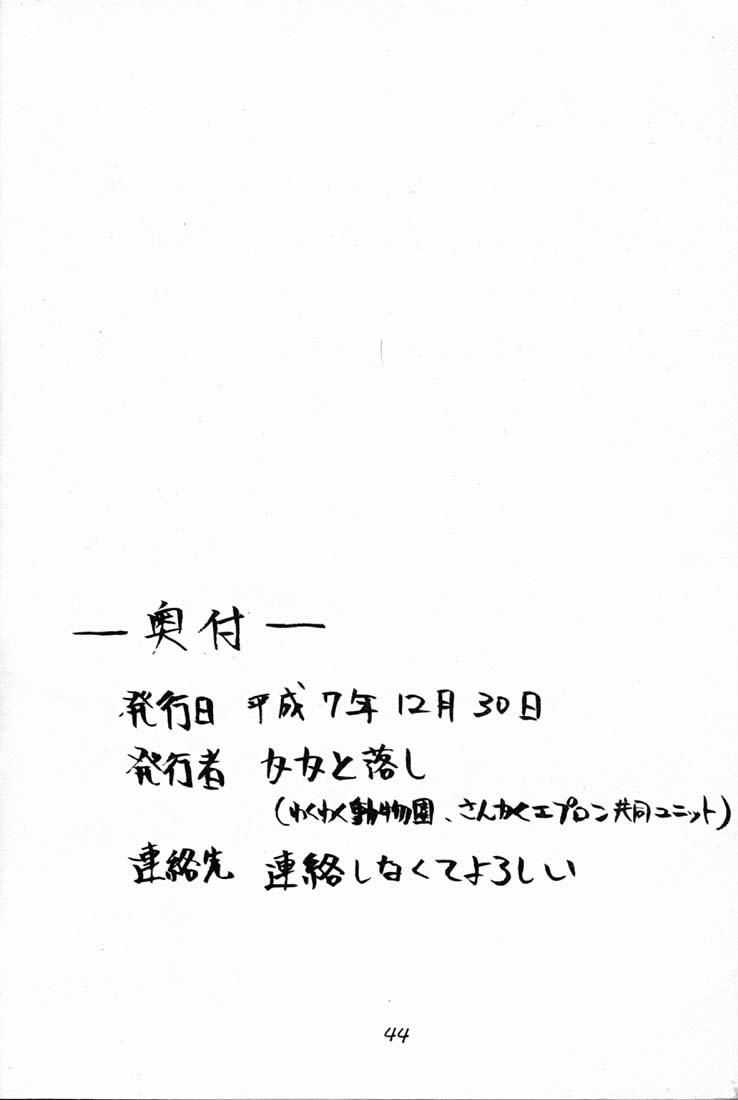 — 奥付 —
発行日 平成7年12月30日
発行者 カカと落し
(わくわく動物園、さんかくエプロン共同ユニット)
連絡先 連絡しなくてよろしい
44